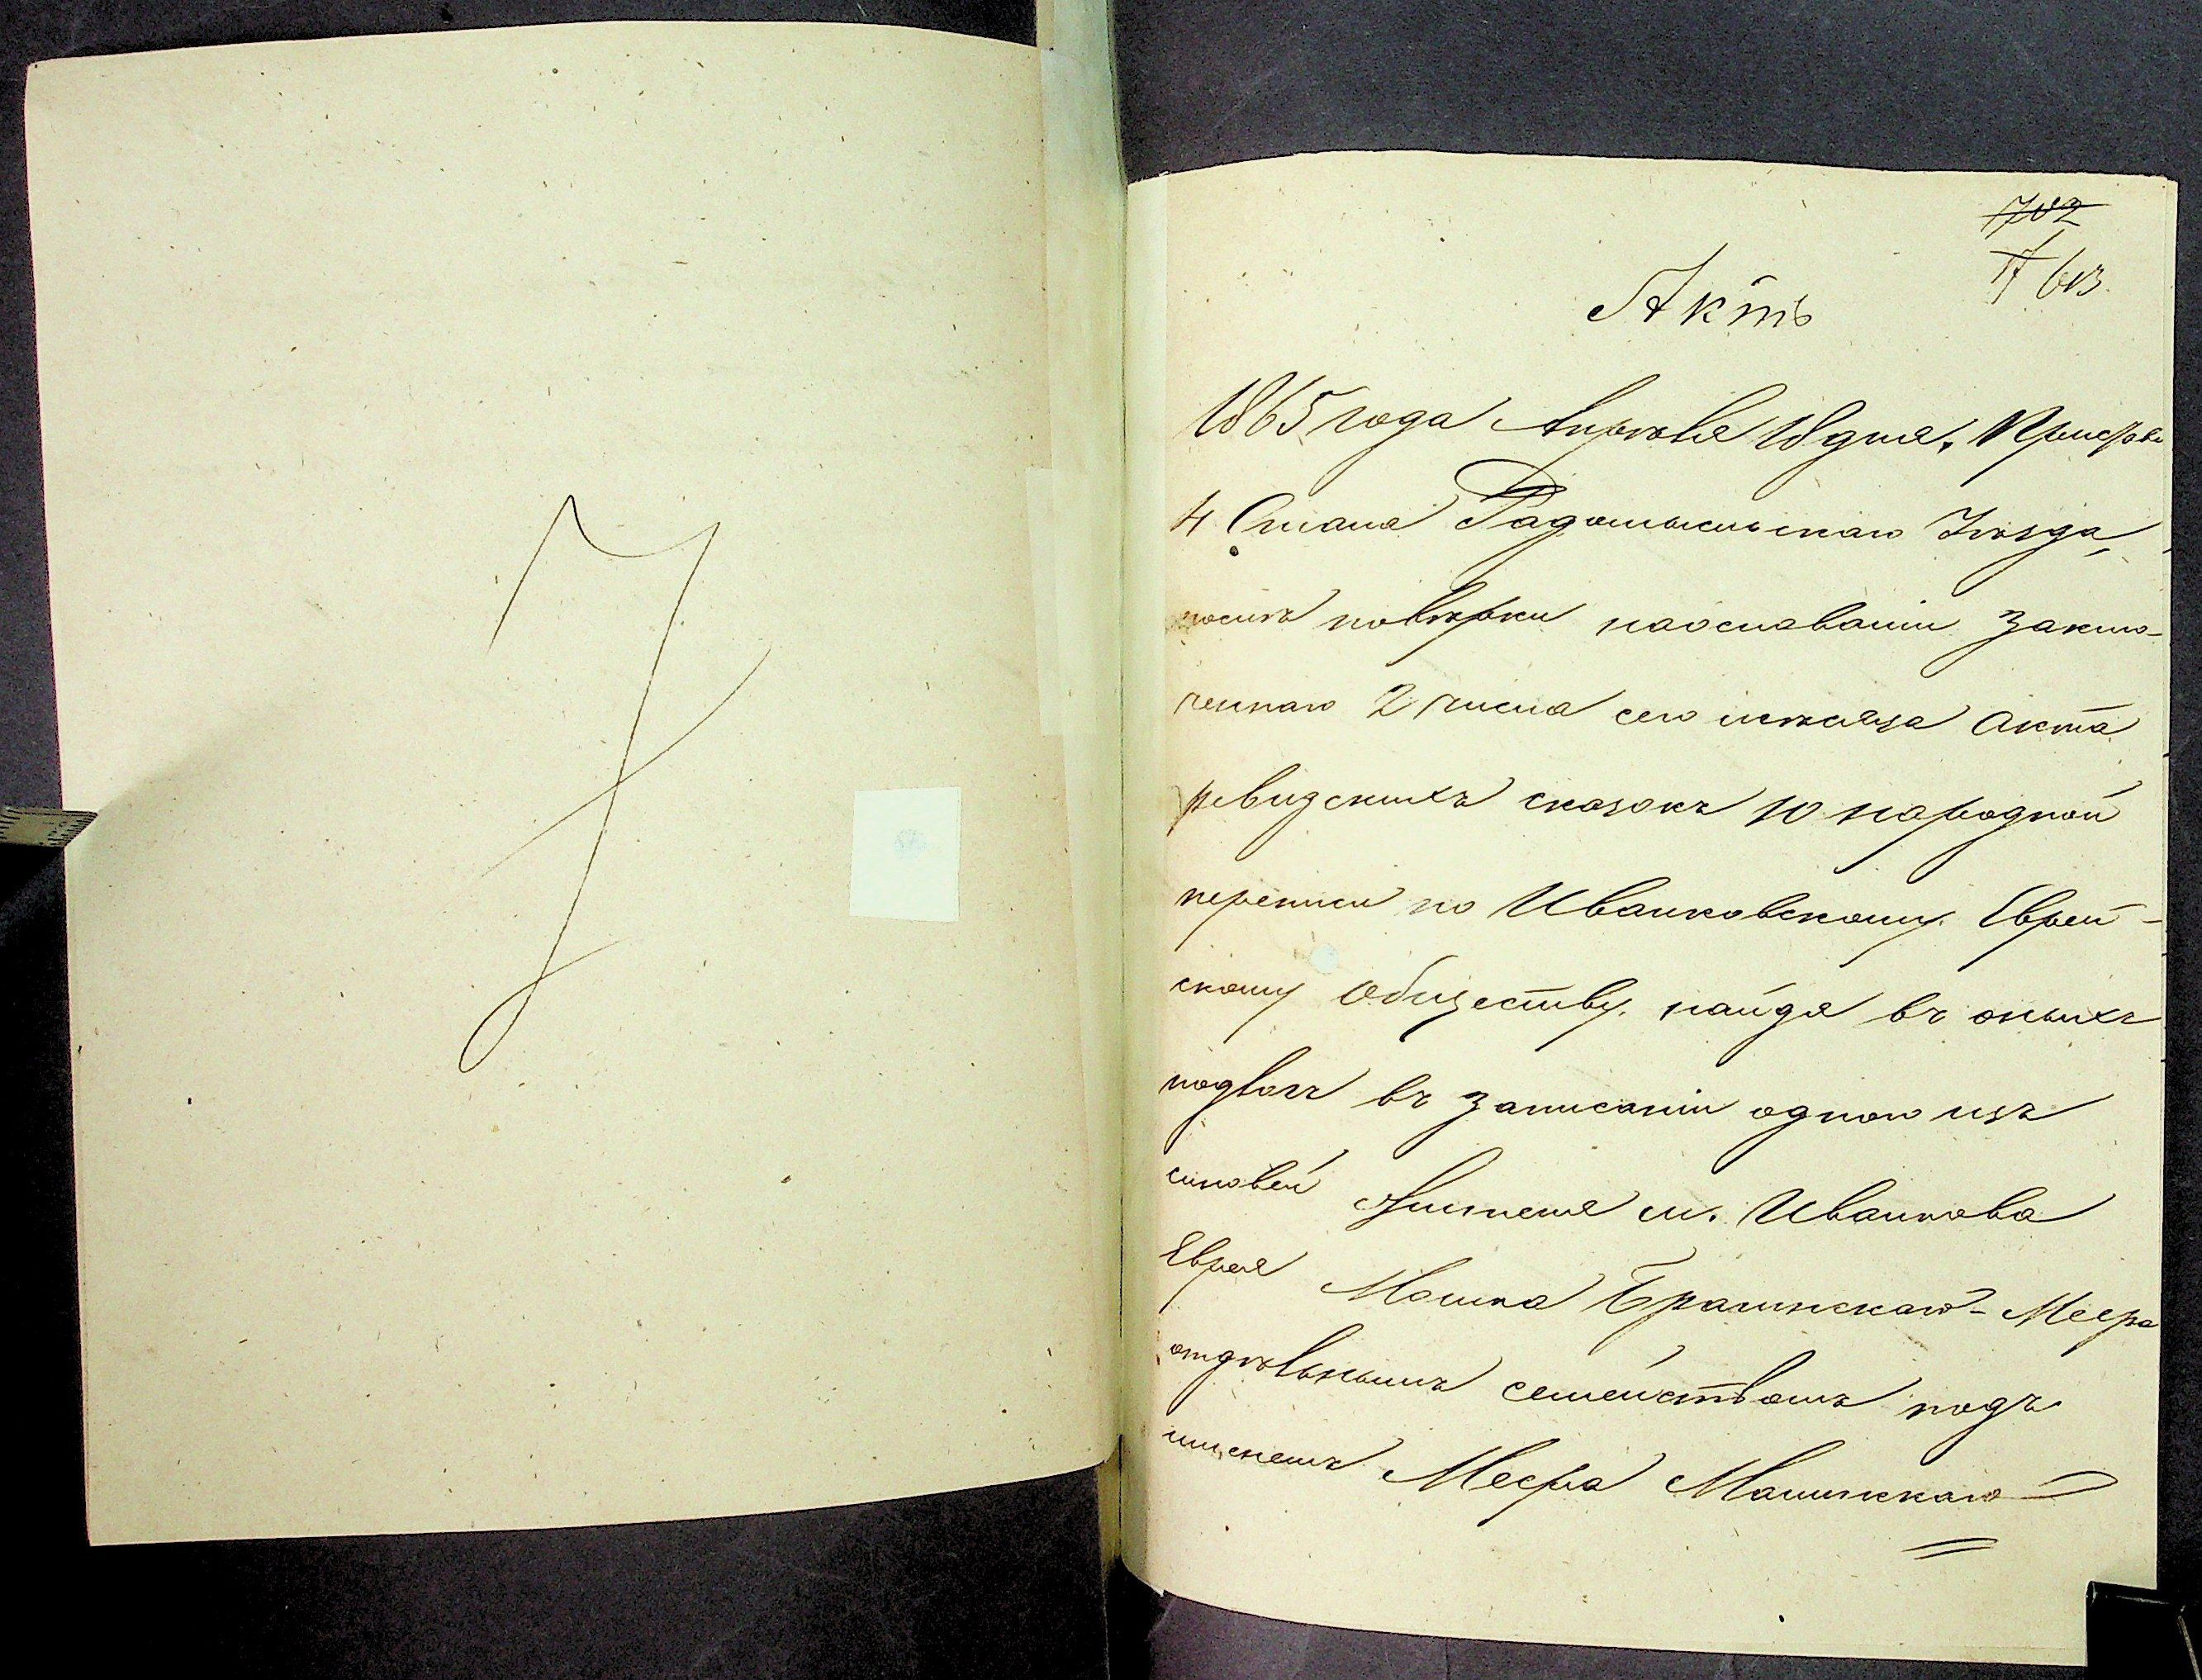 702
613
Актъ
1865 года Апрѣля 18 дня. Приставъ
4 Стана Радомысльскаго Уѣзда,
послѣ повѣрки наоснованіи заклю-
ченнаго 2 числа сего мѣсяца Акта
ревизскихъ сказокъ 10 народной
переписи по Иванковскому Еврей-
скому Обществу, найдя въ оныхъ
подлогъ въ записаніи одного изъ
сыновей жителя м. Иванкова
Еврея Мошка Брагинскаго - Меера
отдѣльнымъ семействомъ подъ
именемъ Меера